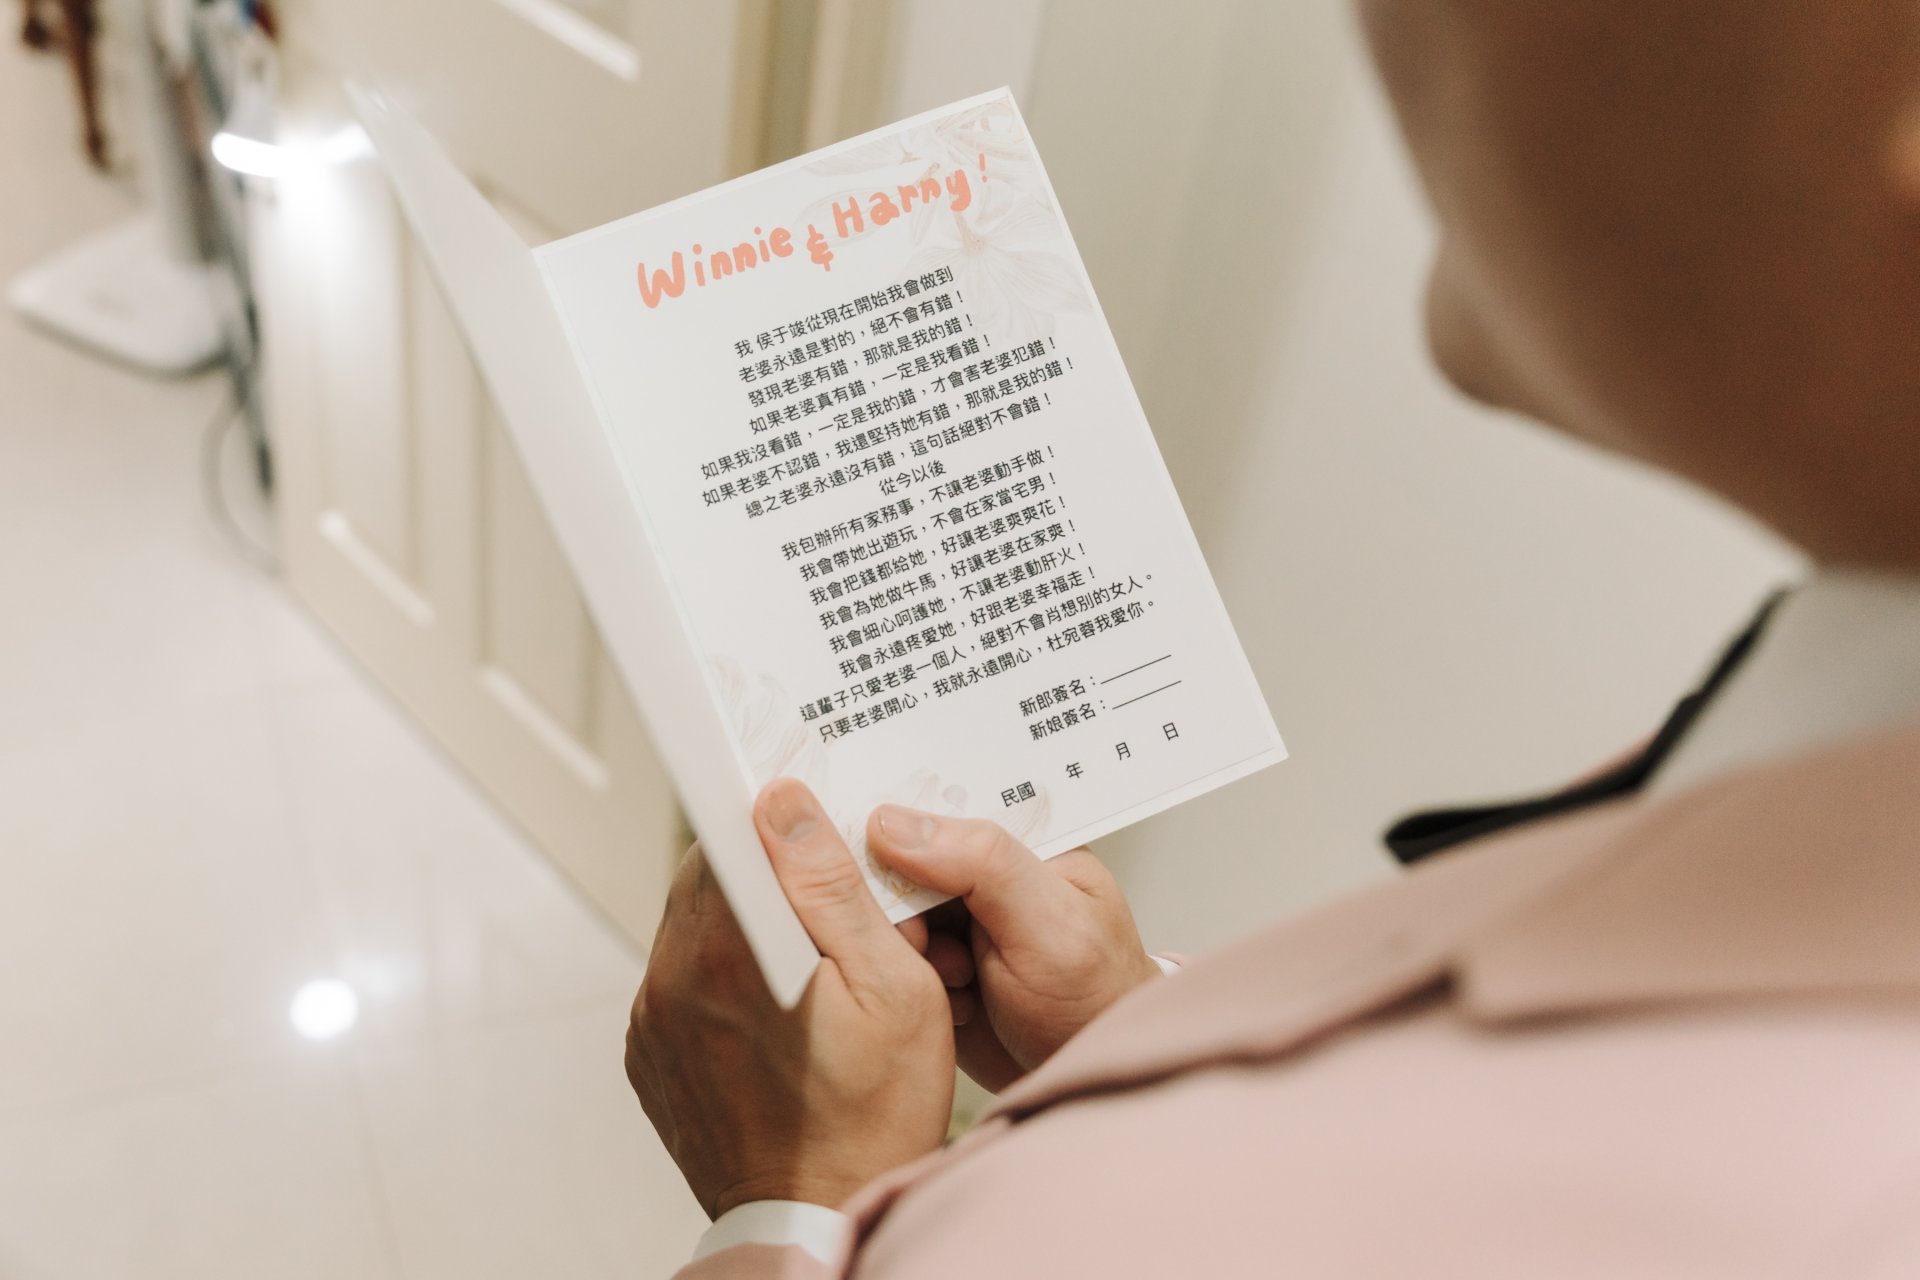 Winnie & Harry!
我 侯于竣從現在開始我會做到
老婆永遠是對的，絕不會有錯！
發現老婆有錯，那就是我的錯！
如果老婆真有錯，一定是我看錯！
如果我沒看錯，一定是我的錯，才會害老婆犯錯！
如果老婆不認錯，我還堅持她有錯，那就是我的錯！
總之老婆永遠沒有錯，這句話絕對不會錯！
從今以後
我包辦所有家務事，不讓老婆動手做！
我會帶她出遊玩，不會在家當宅男！
我會把錢都給她，好讓老婆爽爽花！
我會為她做牛馬，好讓老婆在家爽！
我會細心呵護她，不讓老婆動肝火！
我會永遠疼愛她，好跟老婆幸福走！
這輩子只愛老婆一個人，絕對不會肖想別的女人。
只要老婆開心，我就永遠開心，杜宛蓉我愛你。
新郎簽名：________
新娘簽名：________
民國 年 月 日